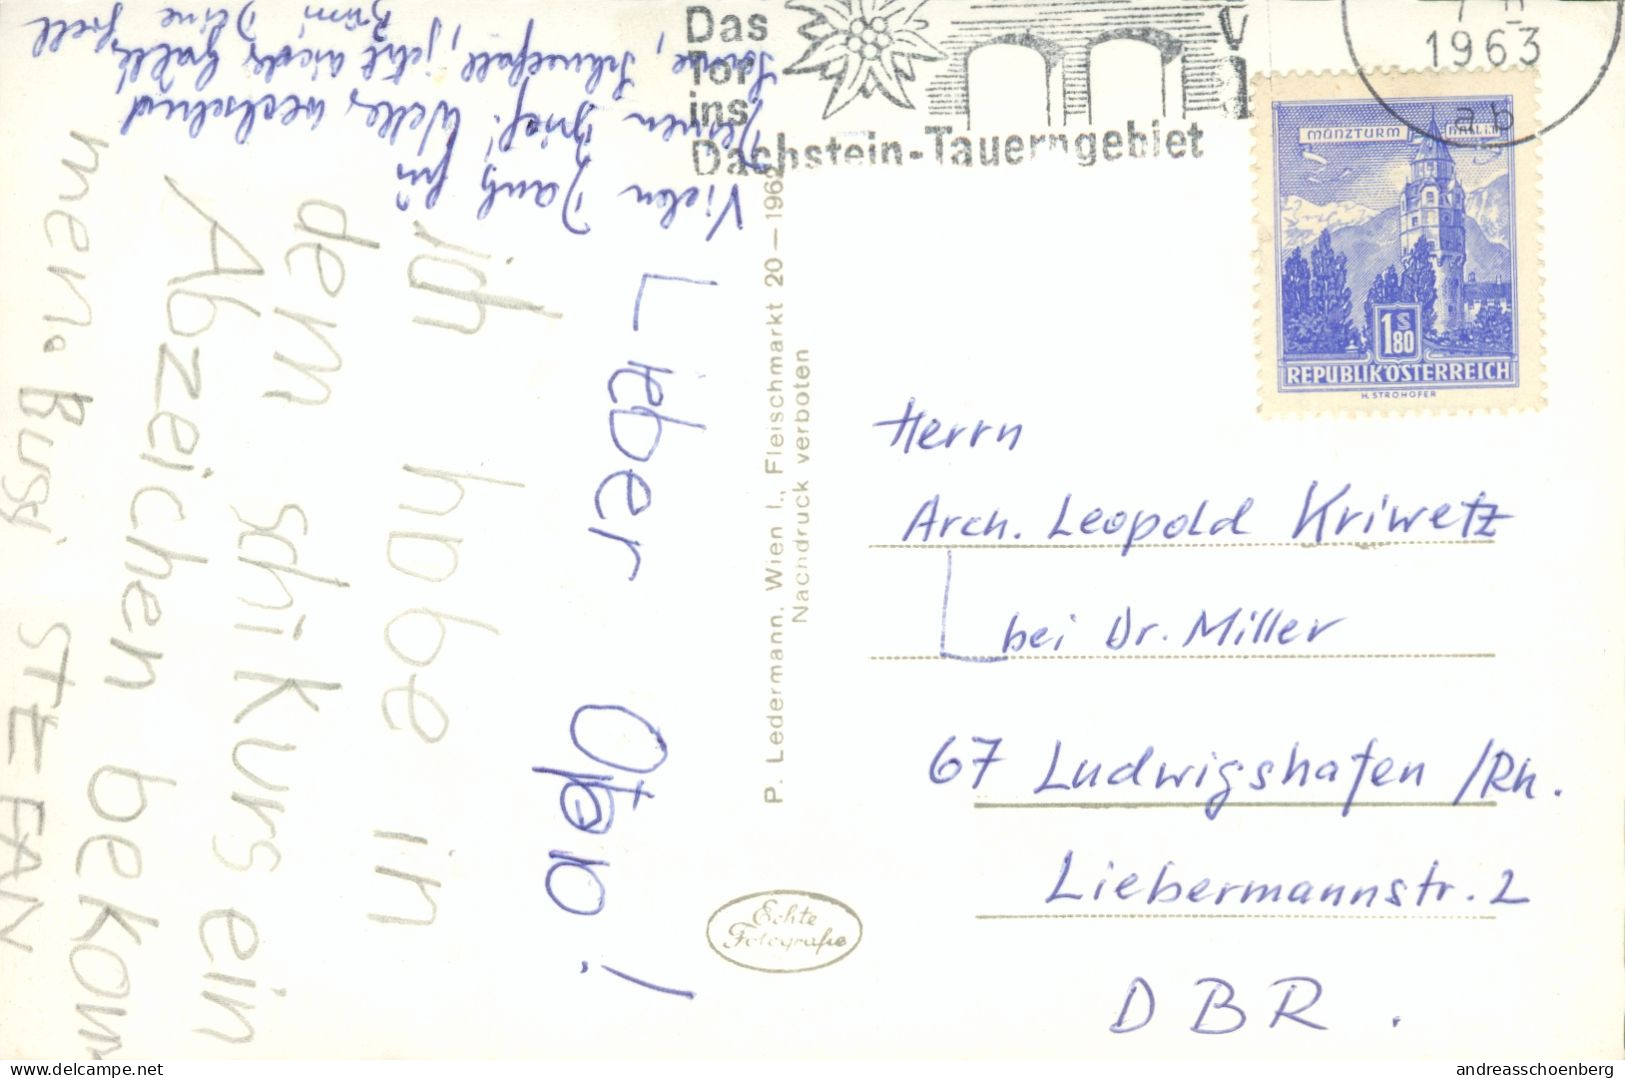 Lieber Opa!
ich habe in
dem schikurs ein
Abzeichen bekom
men. Busi STEFAN
Vielen Dank für
Deinen Brief! Wetter wechselnd
Sonne, Schneefall, jetzt wieder
Deine
Das
Tor
ins
Dachstein-Tauerngebiet
1963
ab
MÜNZTURM
HALL i. T.
1 S 80
REPUBLIK ÖSTERREICH
H. STROHOFER
P. Ledermann, Wien I., Fleischmarkt 20 — 1962
Nachdruck verboten
Echte
Fotografie
Herrn
Arch. Leopold Kriwetz
bei Dr. Miller
67 Ludwigshafen /Rh.
Liebermannstr. 2
DBR.
delcampe.net
andreasschoenberg